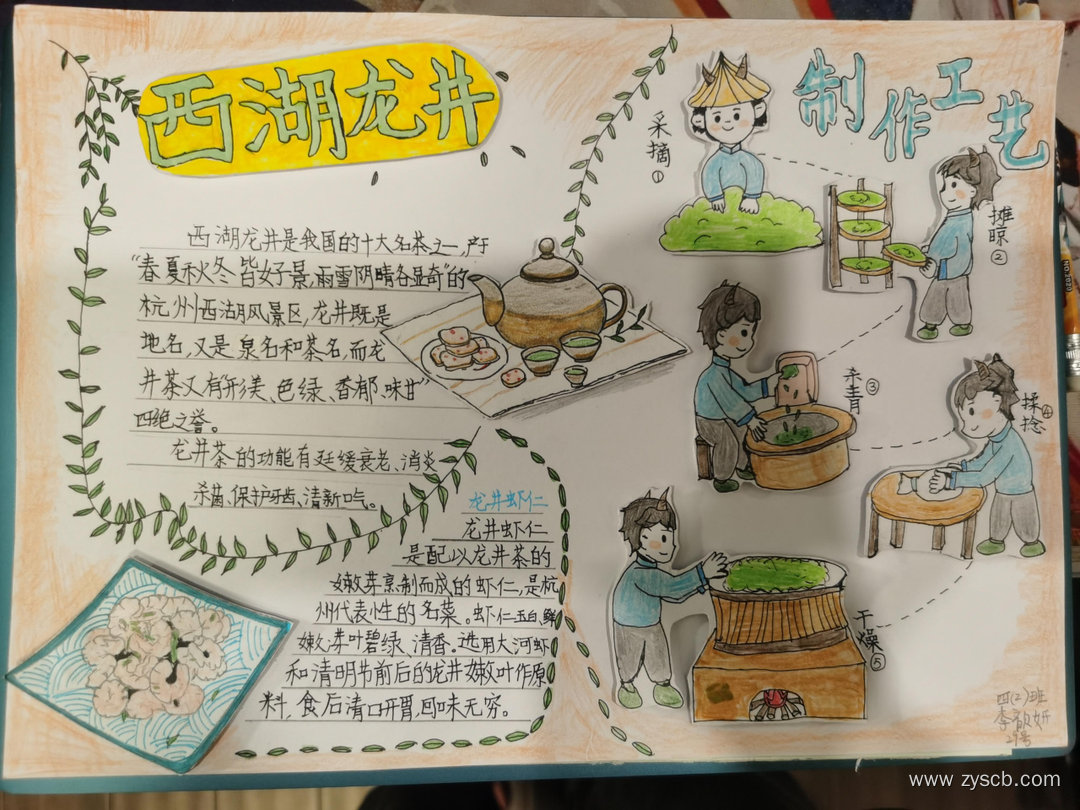 西湖龙井
西湖龙井是我国的十大名茶之一,产于
“春夏秋冬皆好景,雨雪阴晴各显奇”的
杭州西湖风景区,龙井既是
地名,又是泉名和茶名,而龙
井茶又有“形美、色绿、香郁、味甘”
四绝之誉。
龙井茶的功能有延缓衰老、消炎
杀菌、保护牙齿、清新口气。
龙井虾仁
龙井虾仁
是配以龙井茶的
嫩芽烹制而成的虾仁,是杭
州代表性的名菜。虾仁玉白、鲜
嫩;茶叶碧绿、清香。选用大河虾
和清明节前后的龙井嫩叶作原
料,食后清口开胃,回味无穷。
制作工艺
采摘①
摊晾②
杀青③
揉捻④
干燥⑤
四(2)班
李歆妍
www.zyscb.com